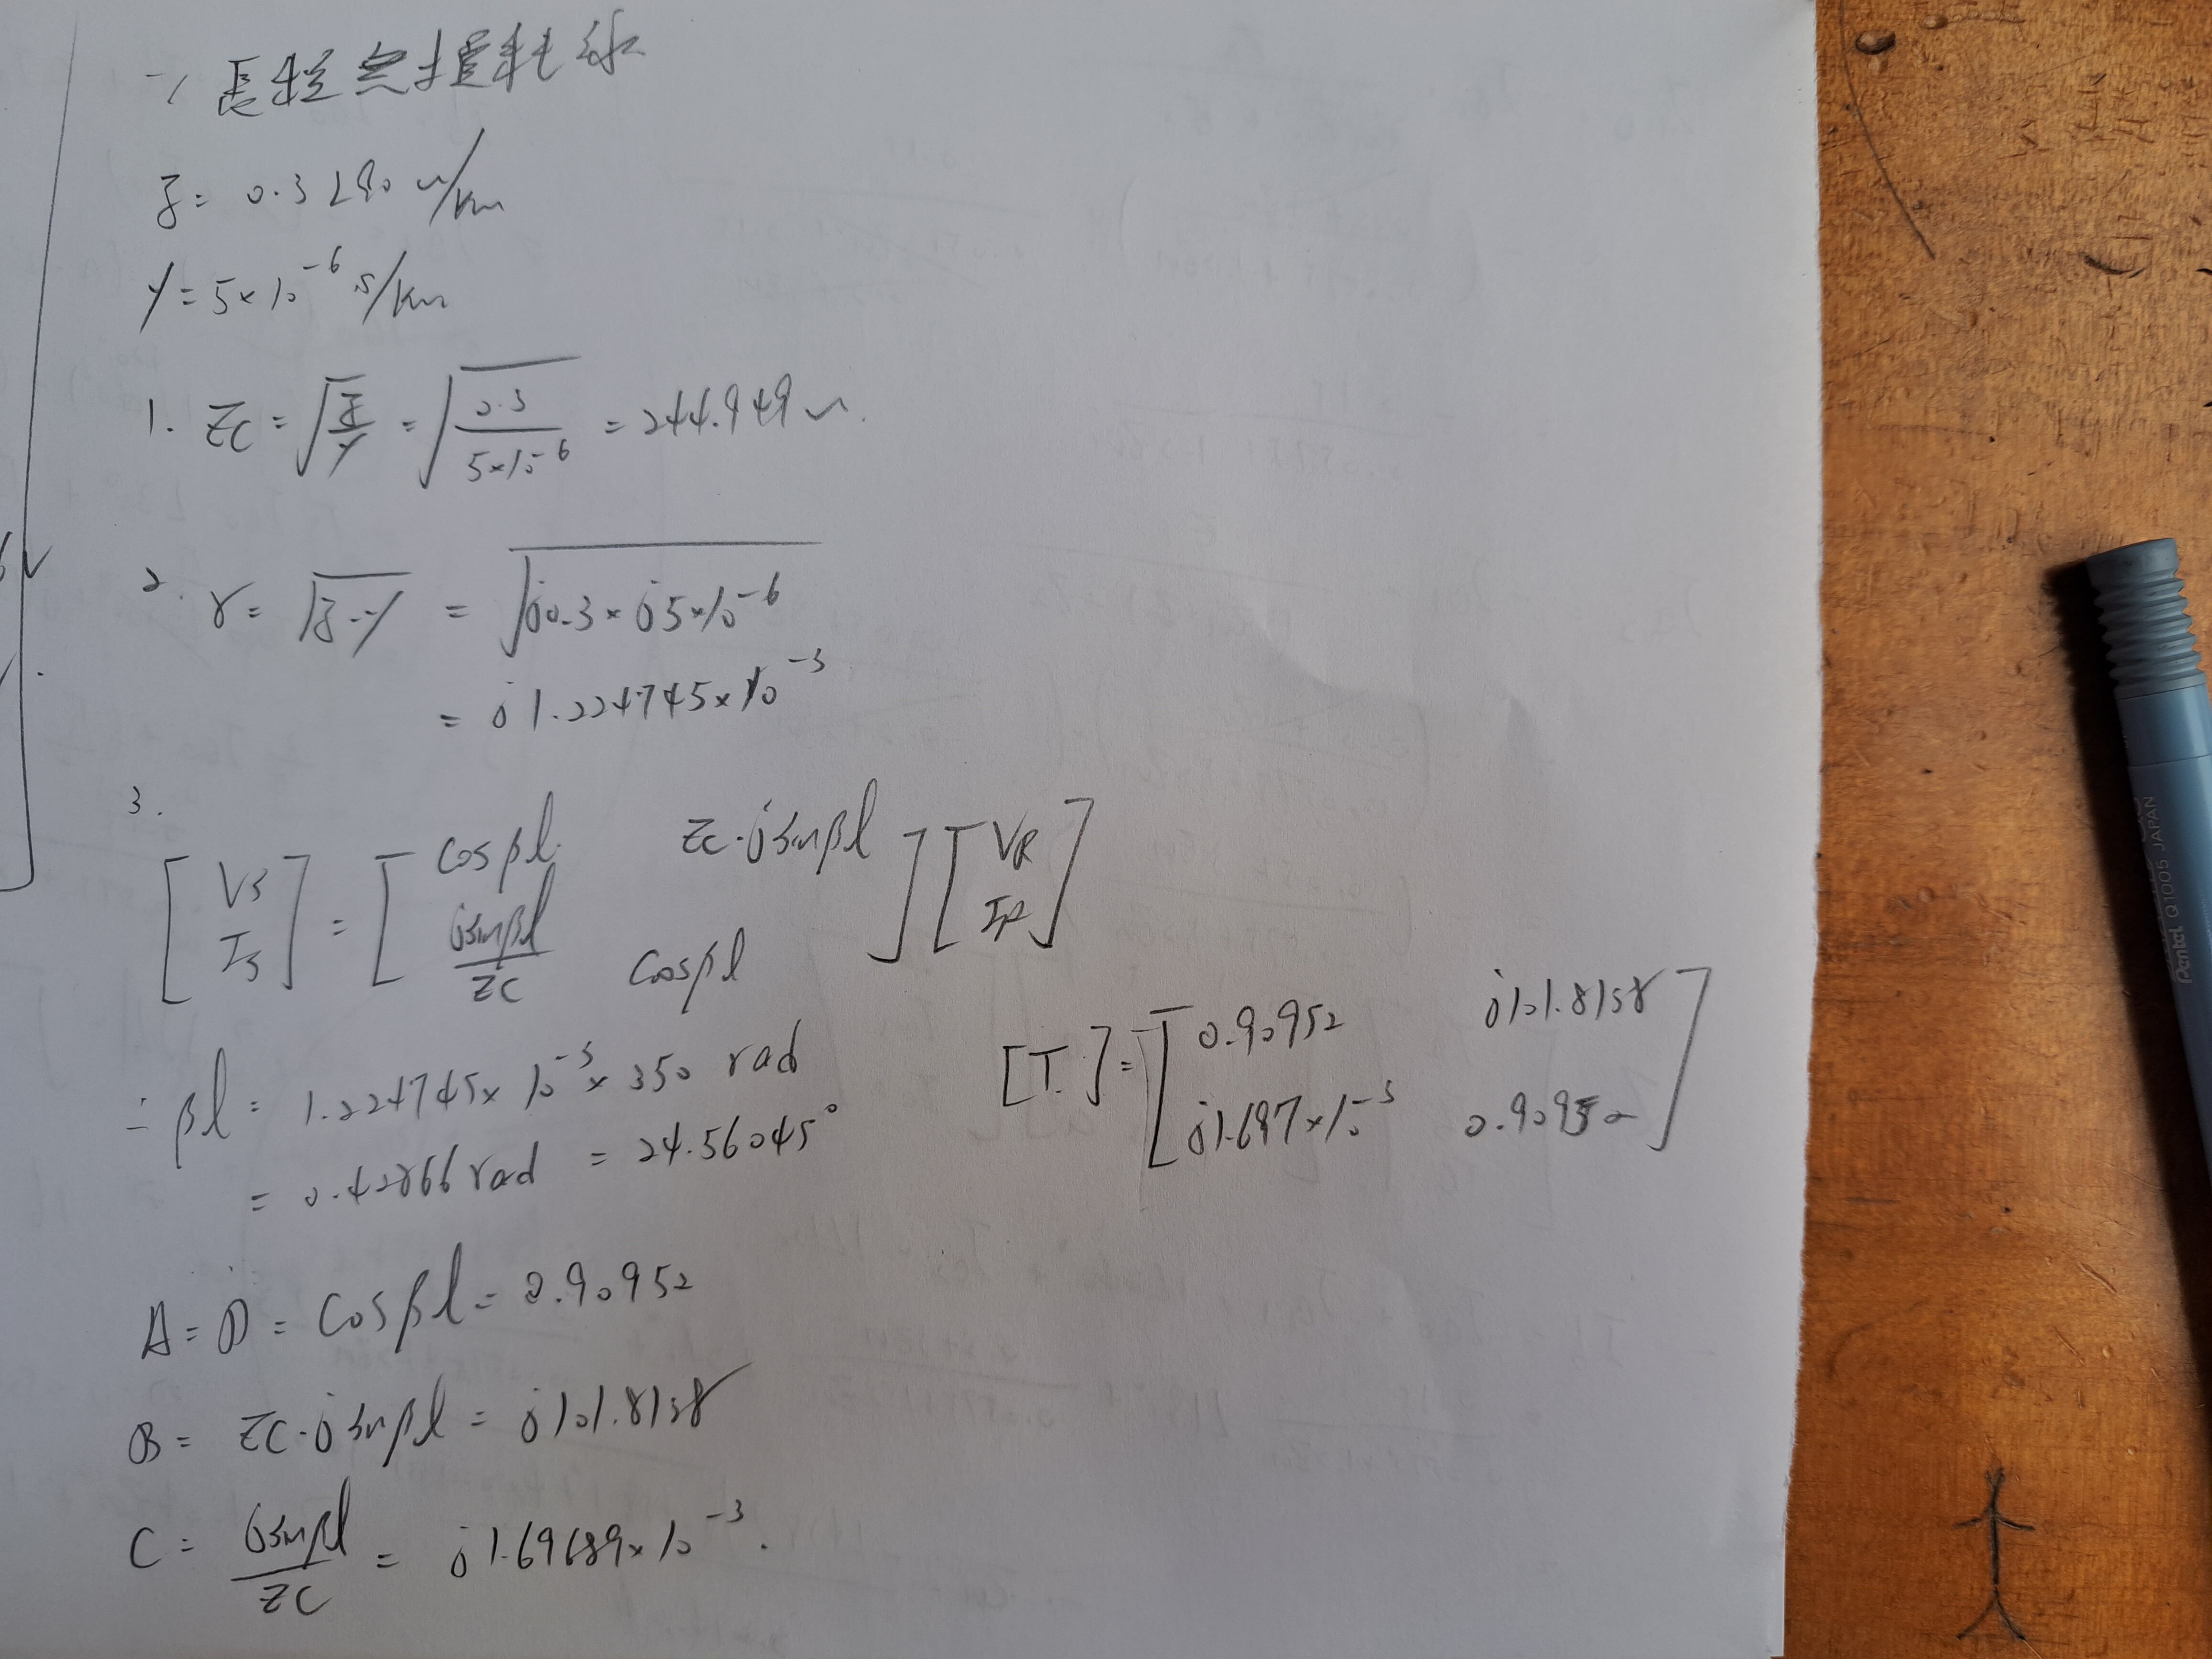 一、長程無損耗線
z = 0.3∠90 Ω/km
y = 5×10⁻⁶ s/km
1. Zc = √(z/y) = √(0.3/(5×10⁻⁶)) = 244.949 Ω.
2. γ = √(z·y) = √(j0.3×j5×10⁻⁶)
= j1.224745×10⁻³
3.
[Vs Is] = [cosβl Zc·jsinβl; jsinβl/Zc cosβl] [VR IR]
∴ βl = 1.224745×10⁻³×350 rad
= 0.42866 rad = 24.56045°
[T] = [0.90952 j101.8158; j1.697×10⁻³ 0.90952]
A = D = cosβl = 0.90952
B = Zc·jsinβl = j101.8158
C = jsinβl/Zc = j1.69689×10⁻³.
Pentel Q1005 JAPAN